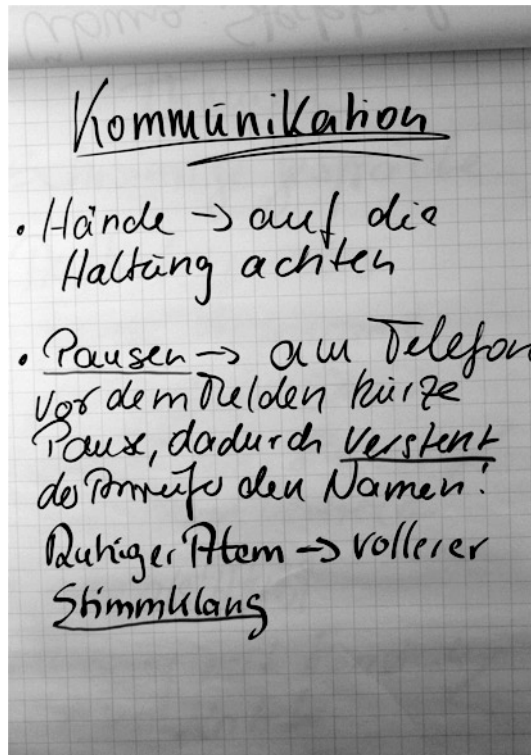 Kommunikation
• Hände → auf die
Haltung achten
• Pausen → am Telefon
vor dem Melden kurze
Pause, dadurch versteht
der Anrufer den Namen!
Ruhiger Atem → vollerer
Stimmklang